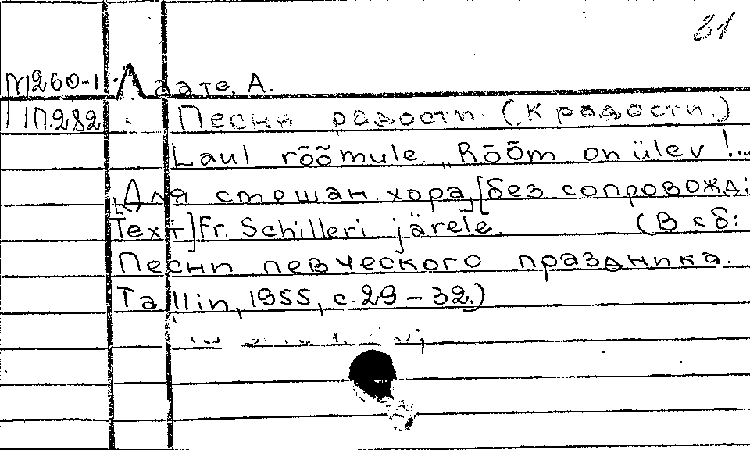 31
М260-1 Лаате, А.
ПП282 Песни радости. (К радости.)
Laul rõõmule „Rõõm on ülev!...
[Для смешан. хора, [без сопровожд:
Text] Fr. Schilleri järele. (В сб:
Песни певческого праздника.
Tallin, 1955, с. 29-32.)